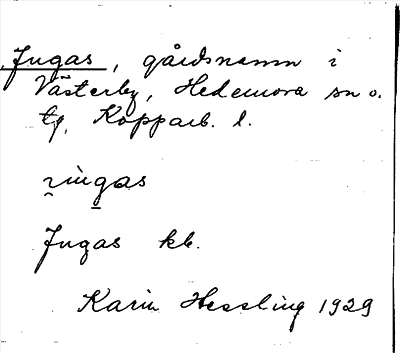 Jugas, gårdsnamn i
Västerby, Hedemora sn o.
tg, Kopparb. l.
Jugas kb.
Karin Hessling 1929